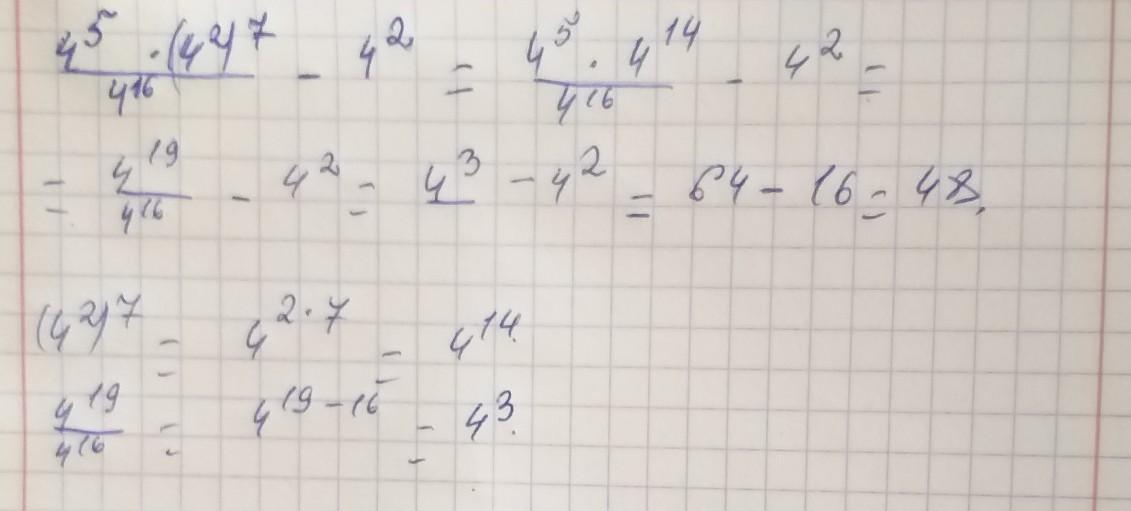 4^5 · (4^2)^7 / 4^16 - 4^2 = 4^5 · 4^14 / 4^16 - 4^2 =
= 4^19 / 4^16 - 4^2 = 4^3 - 4^2 = 64 - 16 = 48.
(4^2)^7 = 4^2·7 = 4^14.
4^19 / 4^16 = 4^19-16 = 4^3.